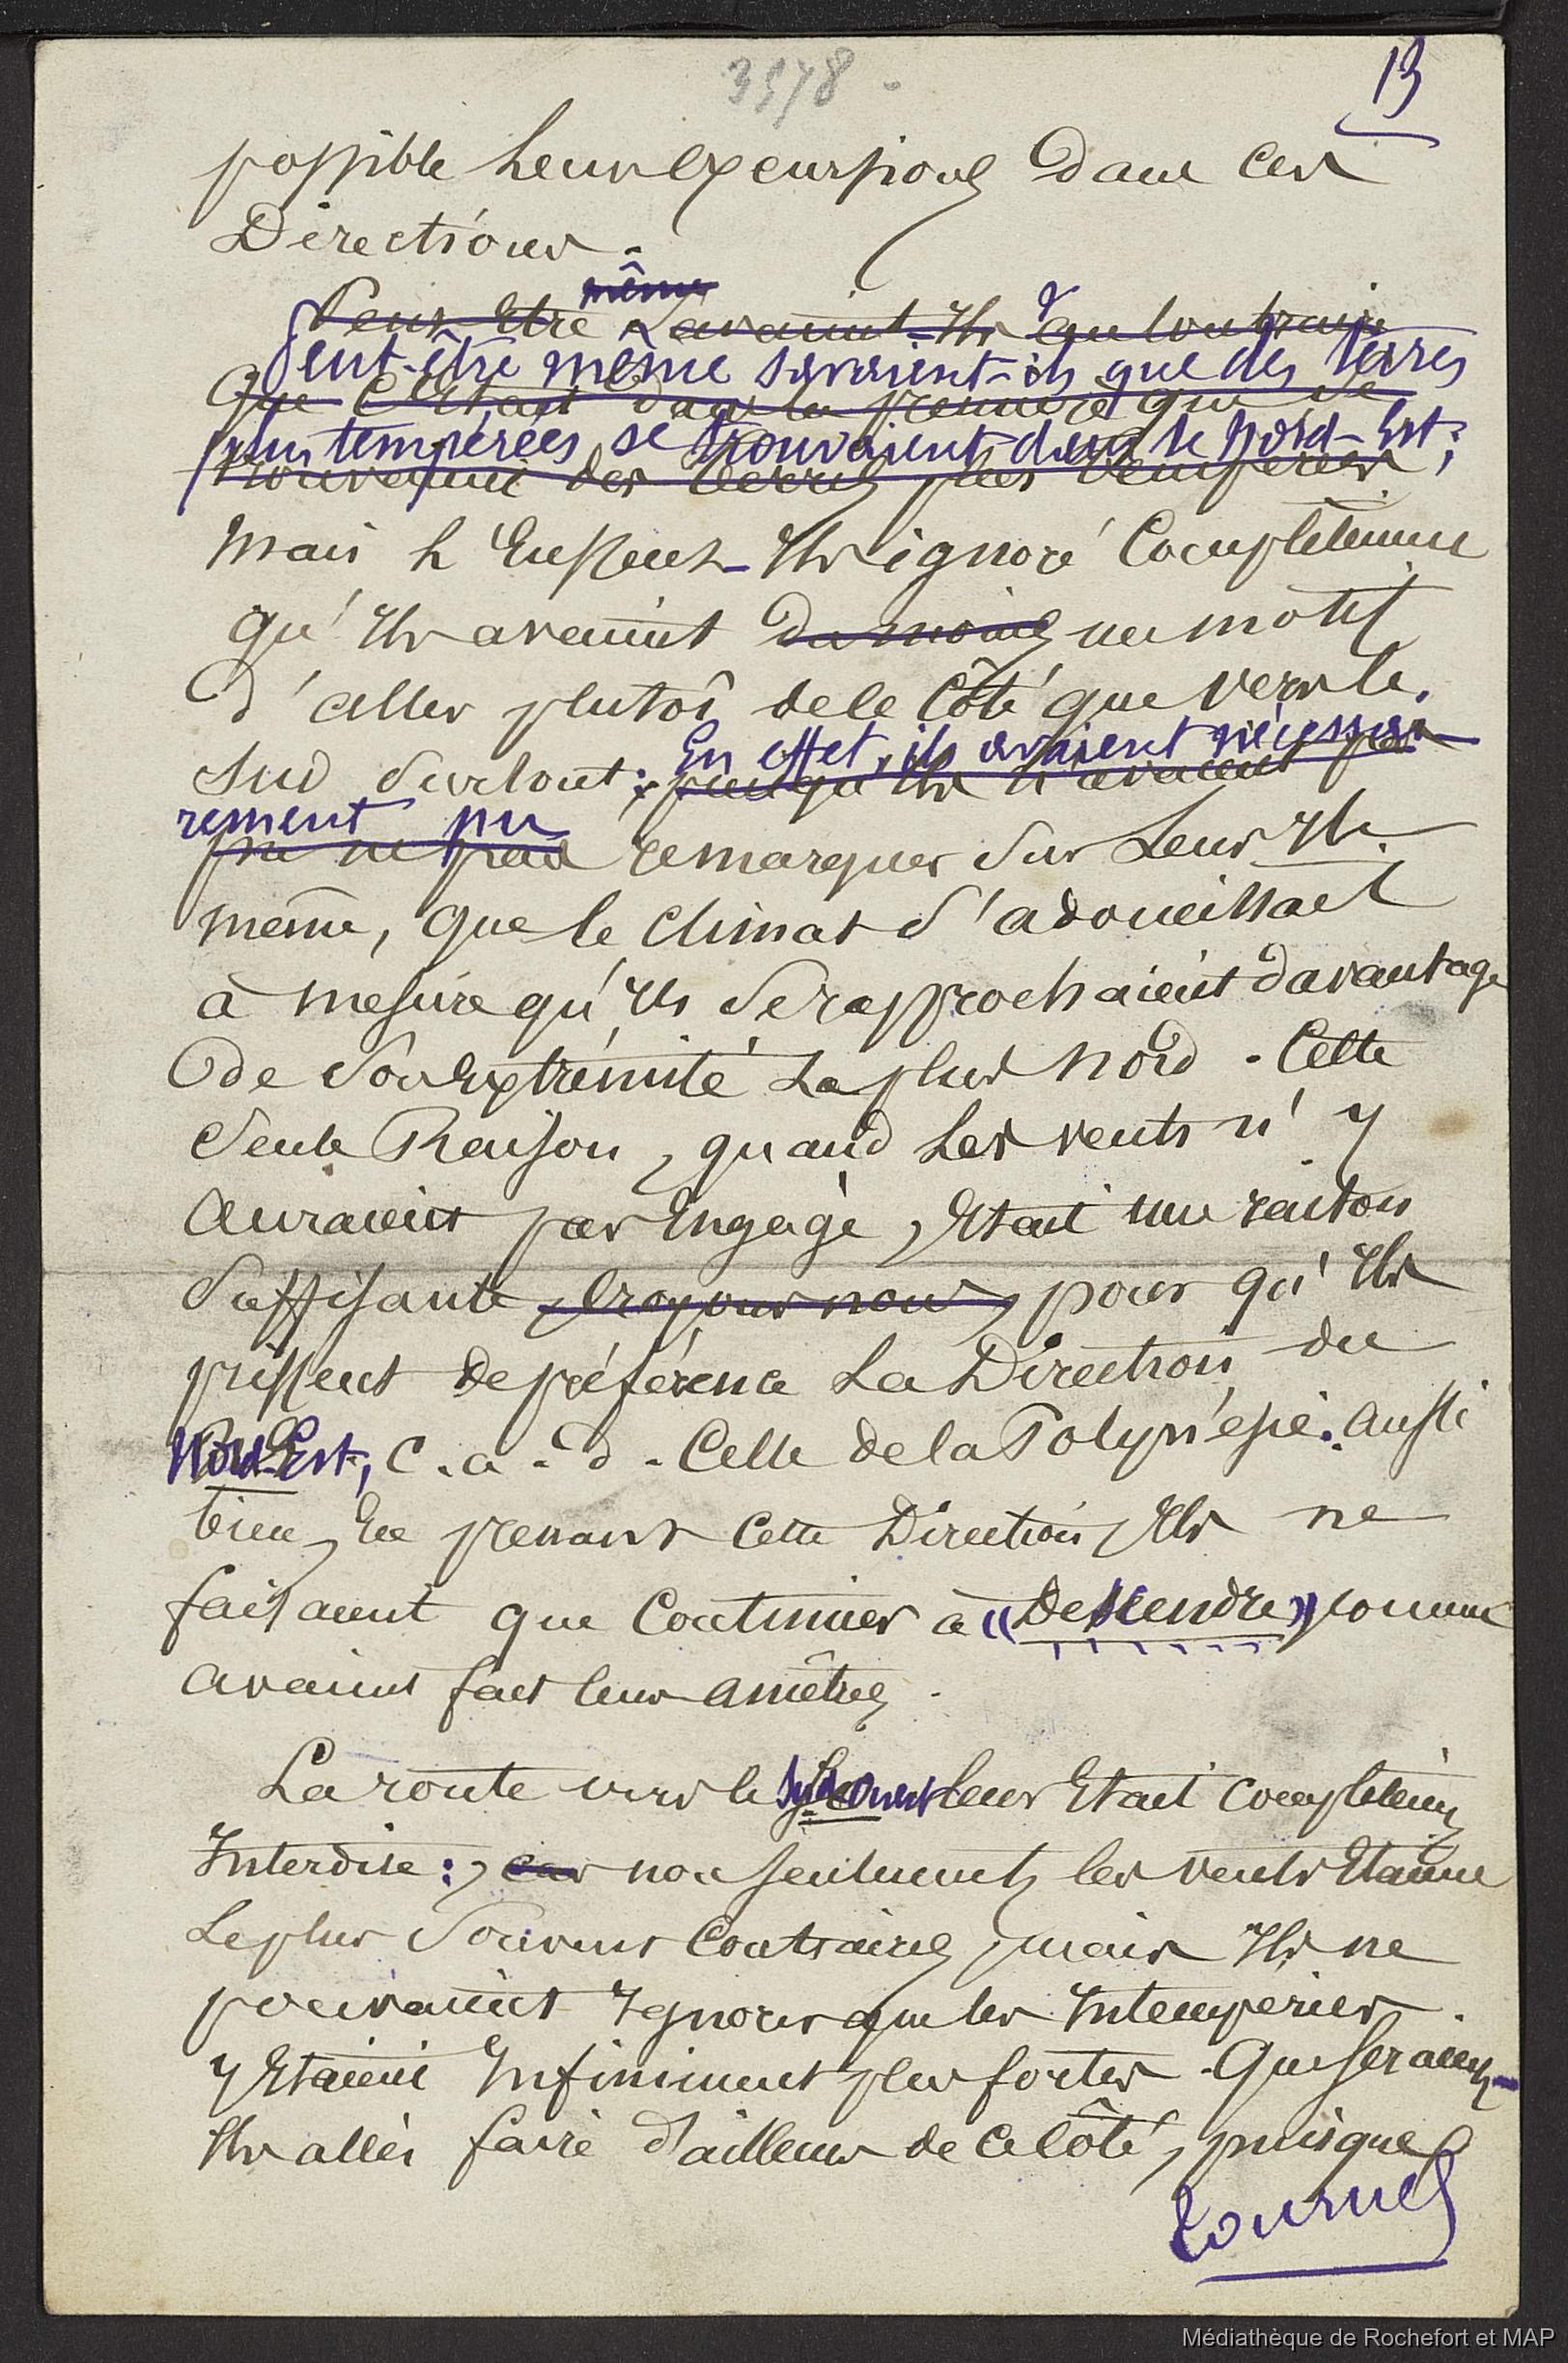 3578.
13
possible leurs excursions dans ces
Directions.
même
Peut Etre savaient-Ils au Contraire
Peut-être même savaient-ils que des terres
que C'Etait dans la première que se
plus tempérées se trouvaient dans le Nord-Est;
trouvaient des terres plus tempérées,
Mais l'Eussent-Ils ignoré Complètement
qu'Ils avaient du moins un motif
d'aller plutôt de ce Côté que vers le
En effet, ils avaient nécessai-
Sud Surtout: puisqu'Ils n'avaient pas
rement pu
pu ne pas remarquer Sur Leur Ile
même, que le Climat S'adoucissait
à mesure qu'Ils Se rapprochaient davantage
de Son Extrémité La plus Nord. Cette
Seule Raison, quand Les vents n'y
auraient pas Engagé, Etait une raison
Suffisante, Croyons nous, pour qu'Ils
prissent de préférence La Direction du
Nord-Est, c.a.d. Celle de la Polynésie. Aussi
bien, En prenant Cette Direction, Ils ne
faisaient que Continuer à «Descendre» comme
avaient fait leurs ancêtres.
La route vers le Sud-Ouest leur Etait Complètement
Interdite:, car non seulement les vents Etaient
Le plus Souvent Contraires, mais Ils ne
pouvaient Ignorer que les Intempéries
y Etaient Infiniment plus fortes. Que seraient-
Ils allés faire d'ailleurs de ce Côté, puisque
tournez
Médiathèque de Rochefort et MAP